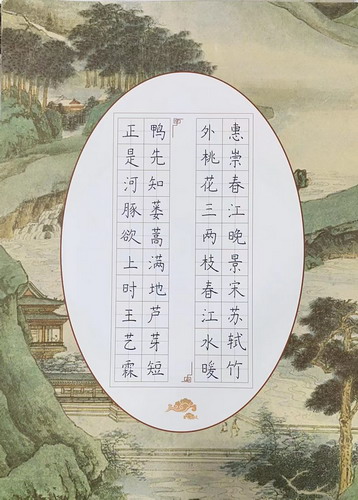 惠崇春江晚景宋苏轼竹
外桃花三两枝春江水暖
鸭先知蒌蒿满地芦芽短
正是河豚欲上时王艺霖